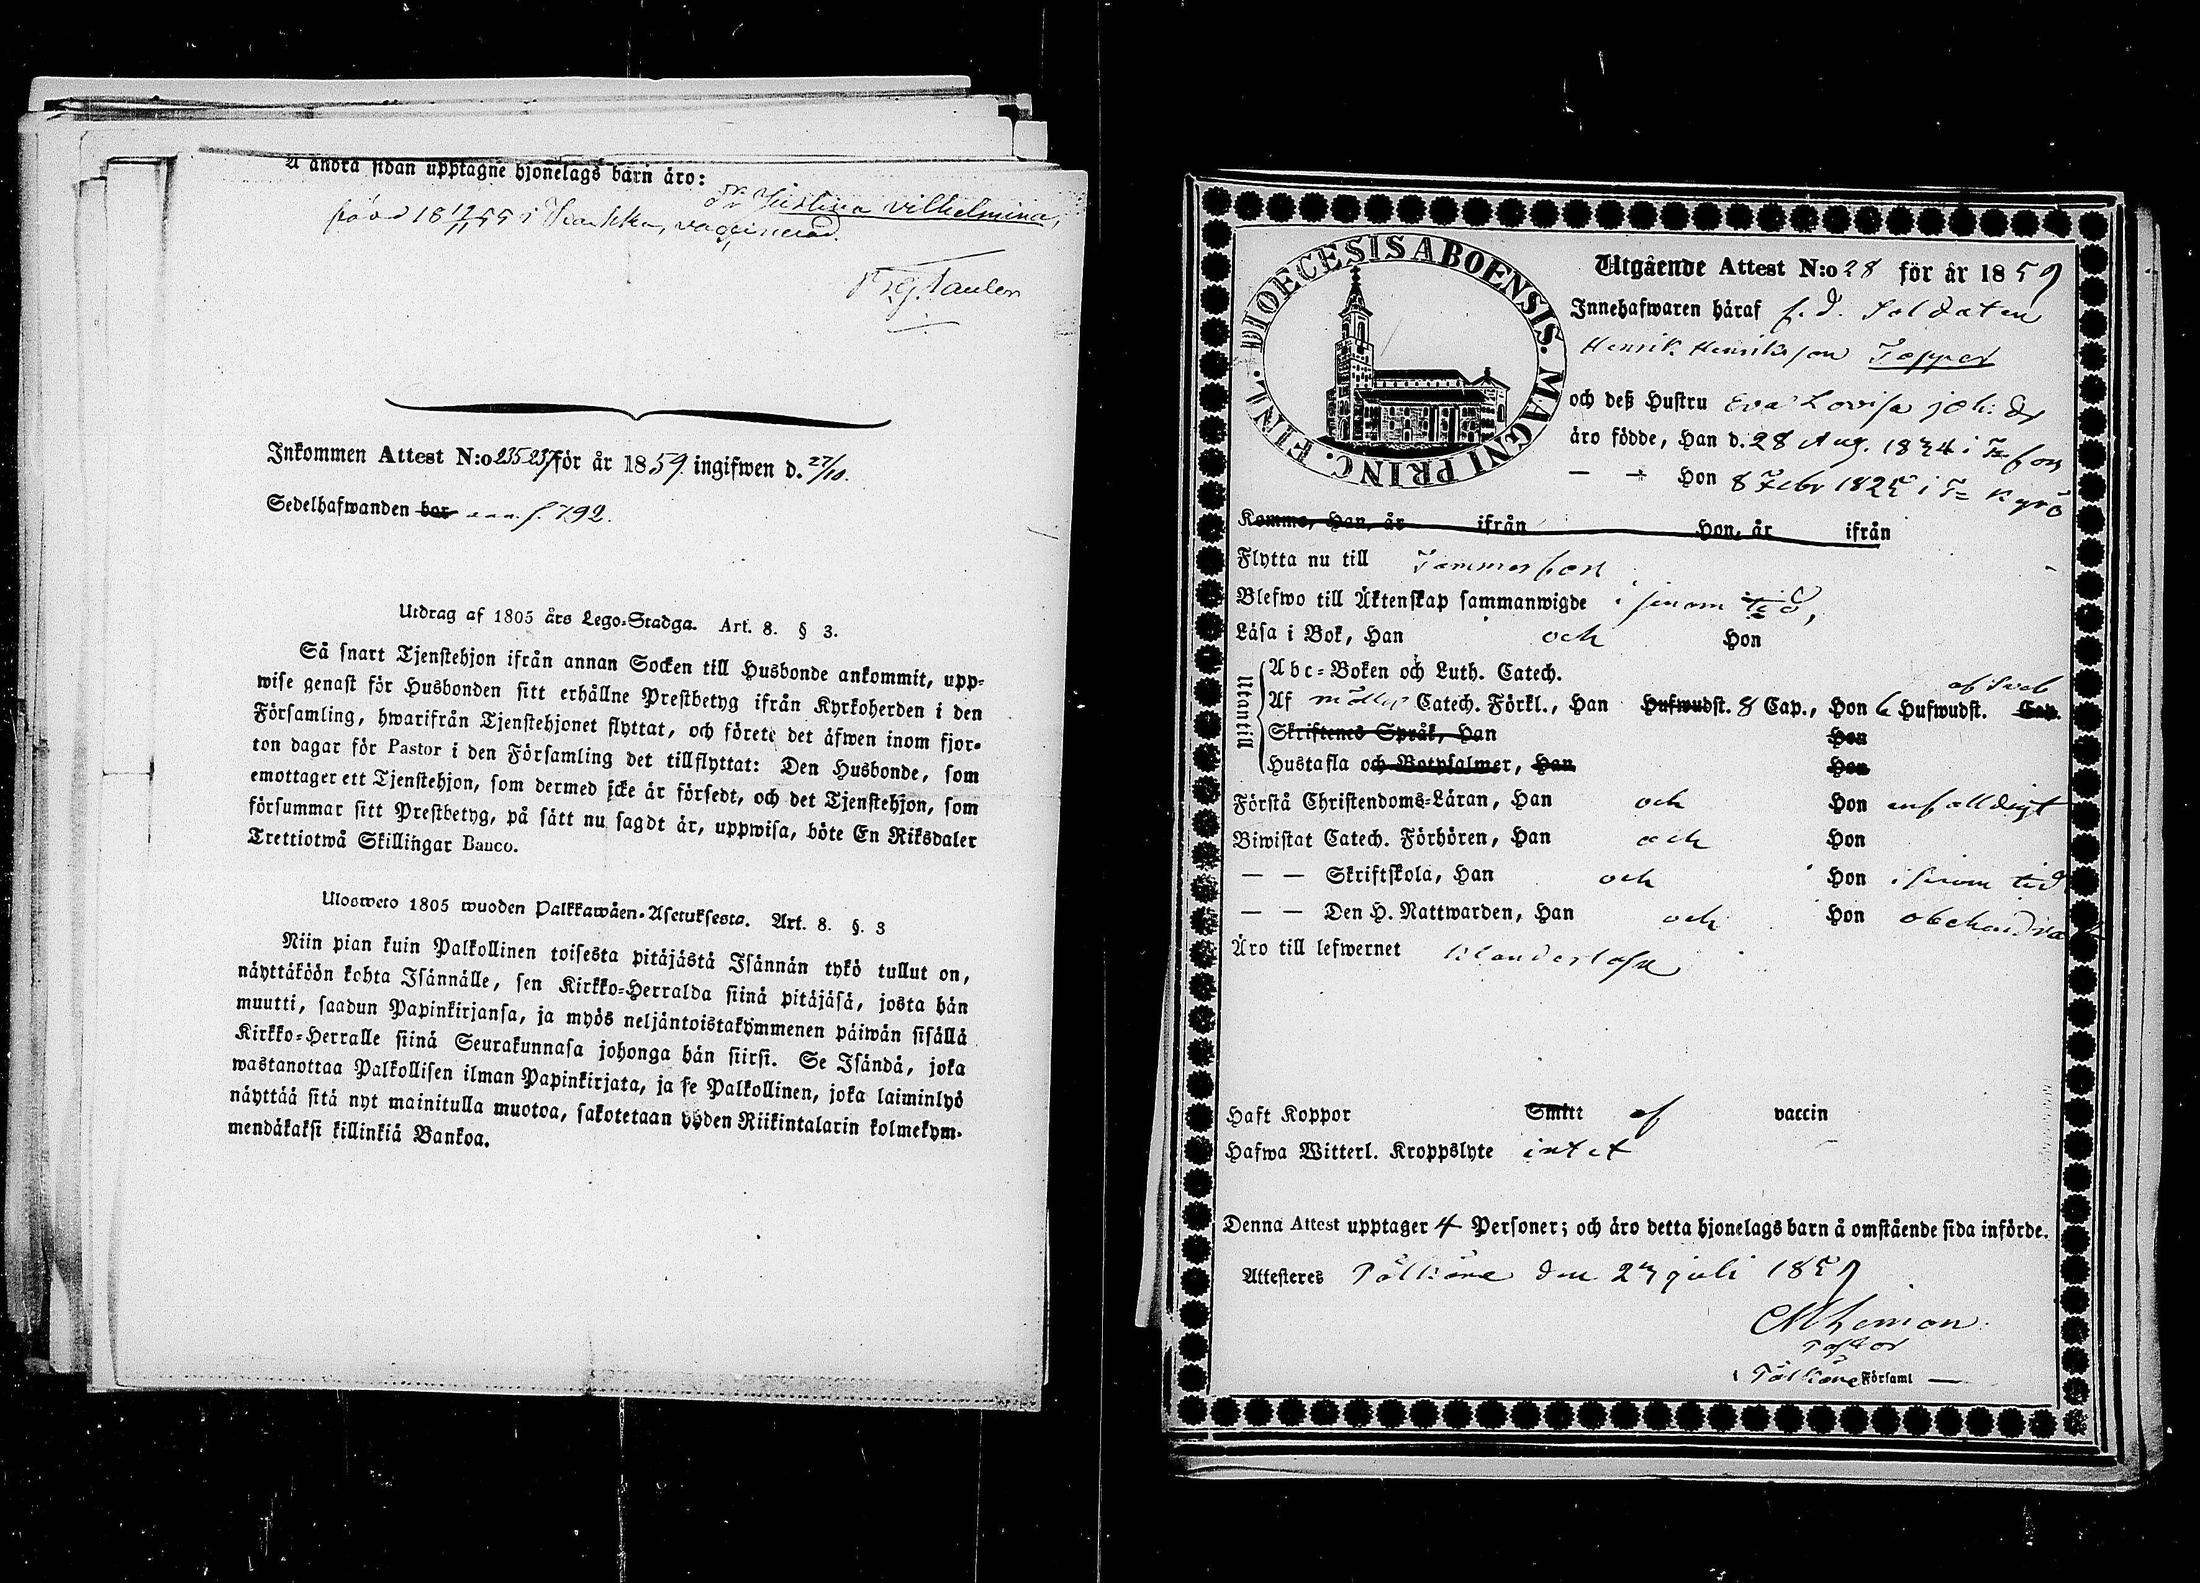 Å andra sidan upptagne hjonelags barn äro:
Dr Justina Vilhelmina,
född 18 12/11 55 i vaccinerad.
Inkommen Attest N:o 235 237 för år 1859. ingifwen d. 27/10.
Sedelhafwanden bor ann. f. 792.
Utdrag af 1805 års Lego-Stadga. Art. 8. § 3.
Så snart Tjenstehjon ifrån annan Socken till Husbonde ankommit, upp-
wise genast för Husbonden sitt erhållne Prestbetyg ifrån Kyrkoherden i den
Församling, hwarifrån Tjenstehjonet flyttat, och förete det äfwen inom fjor-
ton dagar för Pastor i den Församling det tillflyttat: Den Husbonde, som
emottager ett Tjenstehjon, som dermed icke är försedt, och det Tjenstehjon, som
försummar sitt Prestbetyg, på sätt nu sagdt är, uppwisa, böte En Riksdaler
Trettiotwå Skillingar Banco.
Ulosweto 1805 wuoden Palkkawäen-Asetuksesta. Art. 8. §. 3
Niin pian kuin Palkollinen toisesta pitäjästä Isännän tykö tullut on,
näyttäköön kohta Isännälle, sen Kirkko-Herralda siinä pitäjäsä, josta hän
muutti, saadun Papinkirjansa, ja myös neljäntoistakymmenen päiwän sisällä
Kirkko-Herralle siinä Seurakunnasa johonga hän siirsi. Se Isändä, joka
wastanottaa Palkollisen ilman Papinkirjata, ja se Palkollinen, joka laiminlyö
näyttää sitä nyt mainitulla muotoa, sakotetaan yhden Riikintalarin kolmekym-
mendäkaksi killinkiä Bankoa.
DIOECESIS ABOENSIS. MAGNI PRINC. FINL.
Utgående Attest N:o 28 för år 1859
Innehafwaren häraf f. d. Soldaten
Henrik Henriksson Topper
och deß Hustru Eva Lovisa Joh: dr
äro födde, Han d. 28 Aug. 1834 i T:fors
— — Hon 8 Febr 1825 i T: Kyrö
Komme, Han, år ifrån Hon, år ifrån
Flytta nu till Tammerfors
Blefwo till Äktenskap sammanwigde i sinom tid,
Läsa i Bok, Han och Hon
Utantill
Abc-Boken och Luth. Catech.
af Sveb
Af Möllers Catech. Förkl., Han Hufwudst. 8 Cap., Hon 6 Hufwudst. Cap.
Skriftenes Språk, Han Hon
Hustafla och Botpsalmer, Han Hon
Förstå Christendoms-Läran, Han och Hon enfalldigt
Biwistat Catech. Förhören, Han och Hon
— — Skriftskola, Han och Hon i sinom tid
— — Den H. Nattwarden, Han och Hon obehindrade
Äro till lefwernet klanderlösa
Haft Koppor Smitt af vaccin
Hafwa Witterl. Kroppslyte intet
Denna Attest upptager 4 Personer; och äro detta hjonelags barn å omstående sida införde.
Attesteres Pälkäne den 27 juli 1859
Pastor
i Pälkäne Församl —